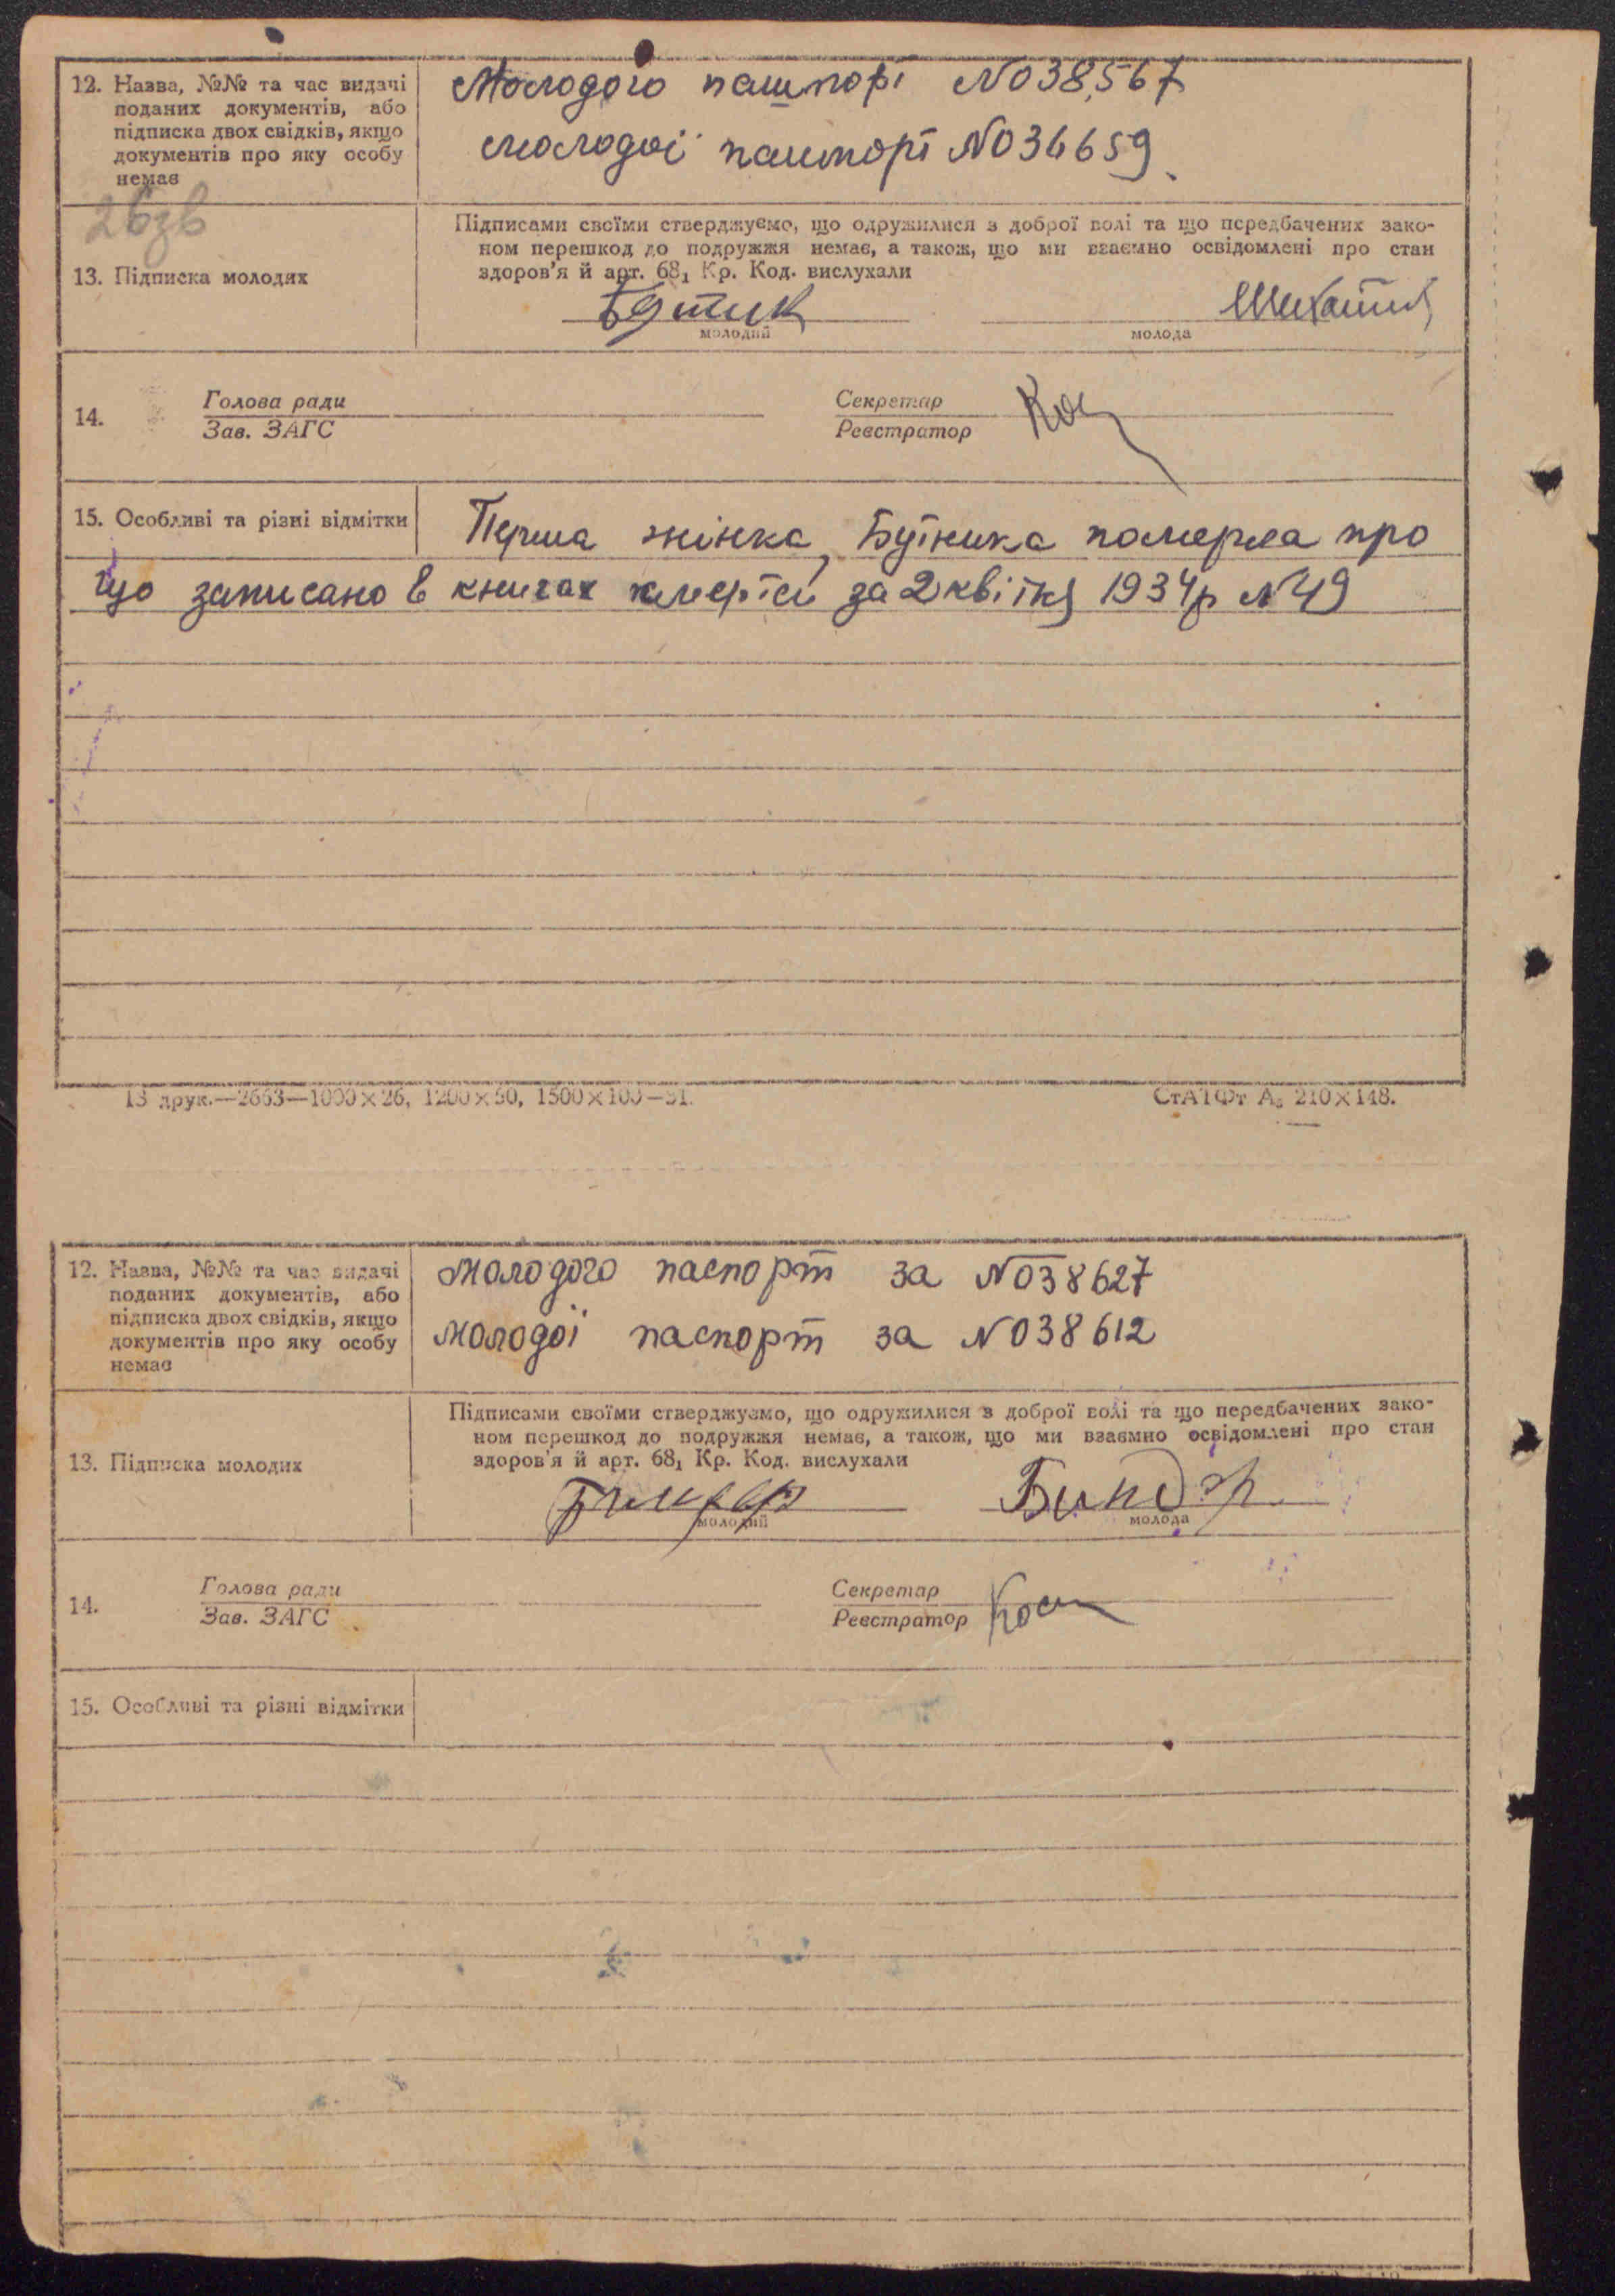 12. Назва, №№ та час видачі
поданих документів, або
підписка двох свідків, якщо
документів про яку особу
немає
Молодого пашпорт №038,567
молодої пашпорт №036659
26зв
13. Підписка молодях
Підписами своїми стверджуємо, що одружилися з доброї волі та що передбачених зако-
ном перешкод до подружжя немає, а також, що ми взаємно освідомлені про стан
здоров'я й арт. 68₁ Кр. Код. вислухали
молодий
молода
14.
Голова ради
Зав. ЗАГС
Секретар
Реєстратор
15. Особливі та різні відмітки
Перша жінка, Бутника померла про
що записано в книгах смерти за 2 квітня 1934р №49
13 друк.—2663—1000×26, 1200×50, 1500×100—31.
СтАТФт А₅ 210×148.
12. Назва, №№ та час видачі
поданих документів, або
підписка двох свідків, якщо
документів про яку особу
немає
Молодого паспорт за №038627
Молодої паспорт за №038612
13. Підписка молодих
Підписами своїми стверджуємо, що одружилися з доброї волі та що передбачених зако-
ном перешкод до подружжя немає, а також, що ми взаємно освідомлені про стан
здоров'я й арт. 68₁ Кр. Код. вислухали
Биндэр
молодий
молода
14.
Голова ради
Зав. ЗАГС
Секретар
Реєстратор
15. Особливі та різні відмітки